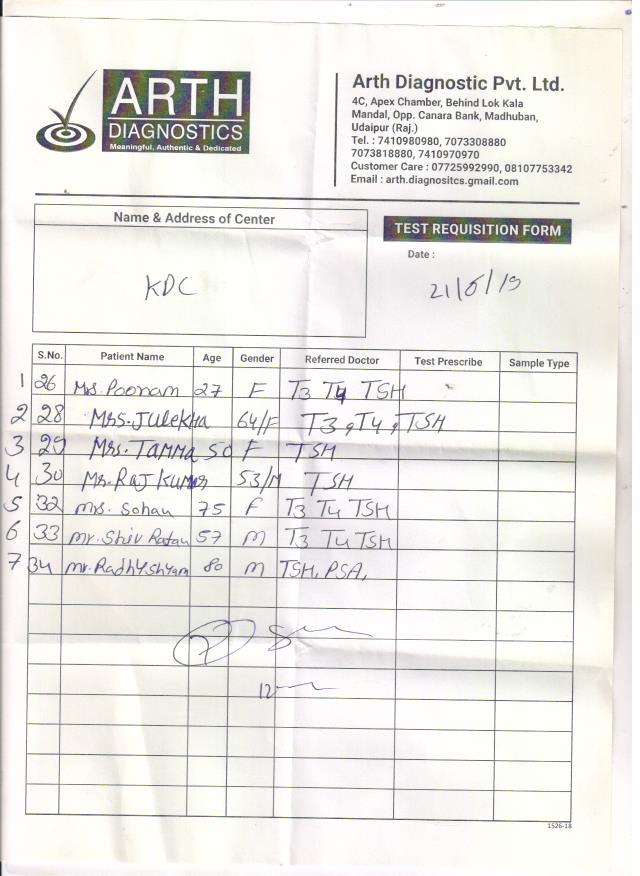 ARTH
DIAGNOSTICS
Meaningful, Authentic & Dedicated
Arth Diagnostic Pvt. Ltd.
4C, Apex Chamber, Behind Lok Kala
Mandal, Opp. Canara Bank, Madhuban,
Udaipur (Raj.)
Tel. : 7410980980, 7073308880
7073818880, 7410970970
Customer Care : 07725992990, 08107753342
Email : arth.diagnositcs.gmail.com
Name & Address of Center
KDC
TEST REQUISITION FORM
Date :
21/5/19
S.No. Patient Name Age Gender Referred Doctor Test Prescribe Sample Type
1 26 Mrs. Poonam 27 F T3 T4 TSH
2 28 Mrs. Julekha 64/F T3, T4, TSH
3 29 Mrs. Tamma 50 F TSH
4 30 Mr. Raj Kumar 53/M TSH
5 32 Mrs. Sohan 75 F T3 T4 TSH
6 33 Mr. Shiv Ratan 57 M T3 T4 TSH
7 34 Mr. Radhyshyam 80 M TSH, PSA,
7
12
1526-18